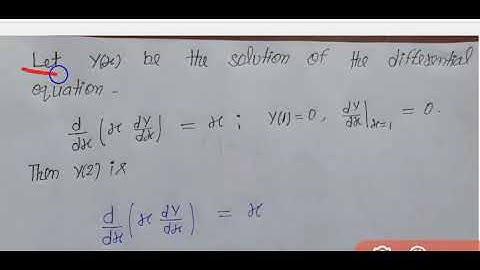 Let y(x) be the solution of the differential
equation -
d/dx (x dy/dx) = x ; y(1)=0, dy/dx|x=1 = 0.
Then y(2) is
d/dx (x dy/dx) = x